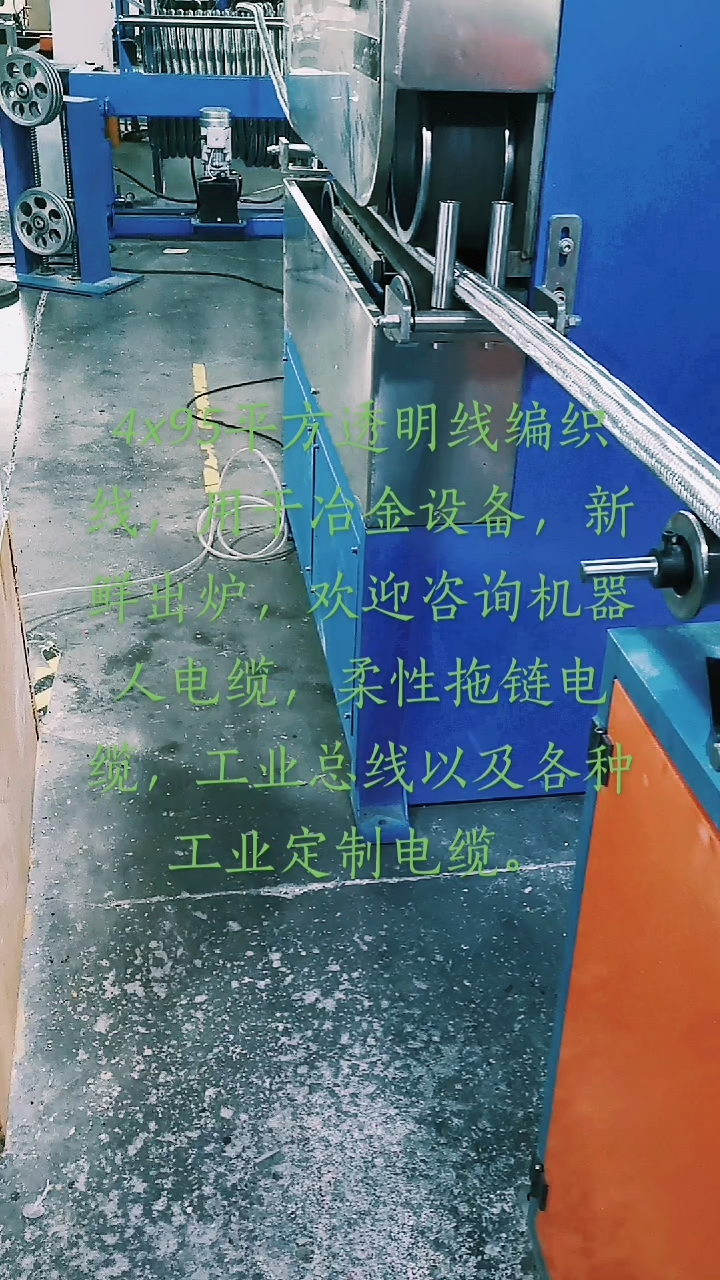 4x95平方透明线编织
线，用于冶金设备，新
鲜出炉，欢迎咨询机器
人电缆，柔性拖链电
缆，工业总线以及各种
工业定制电缆。